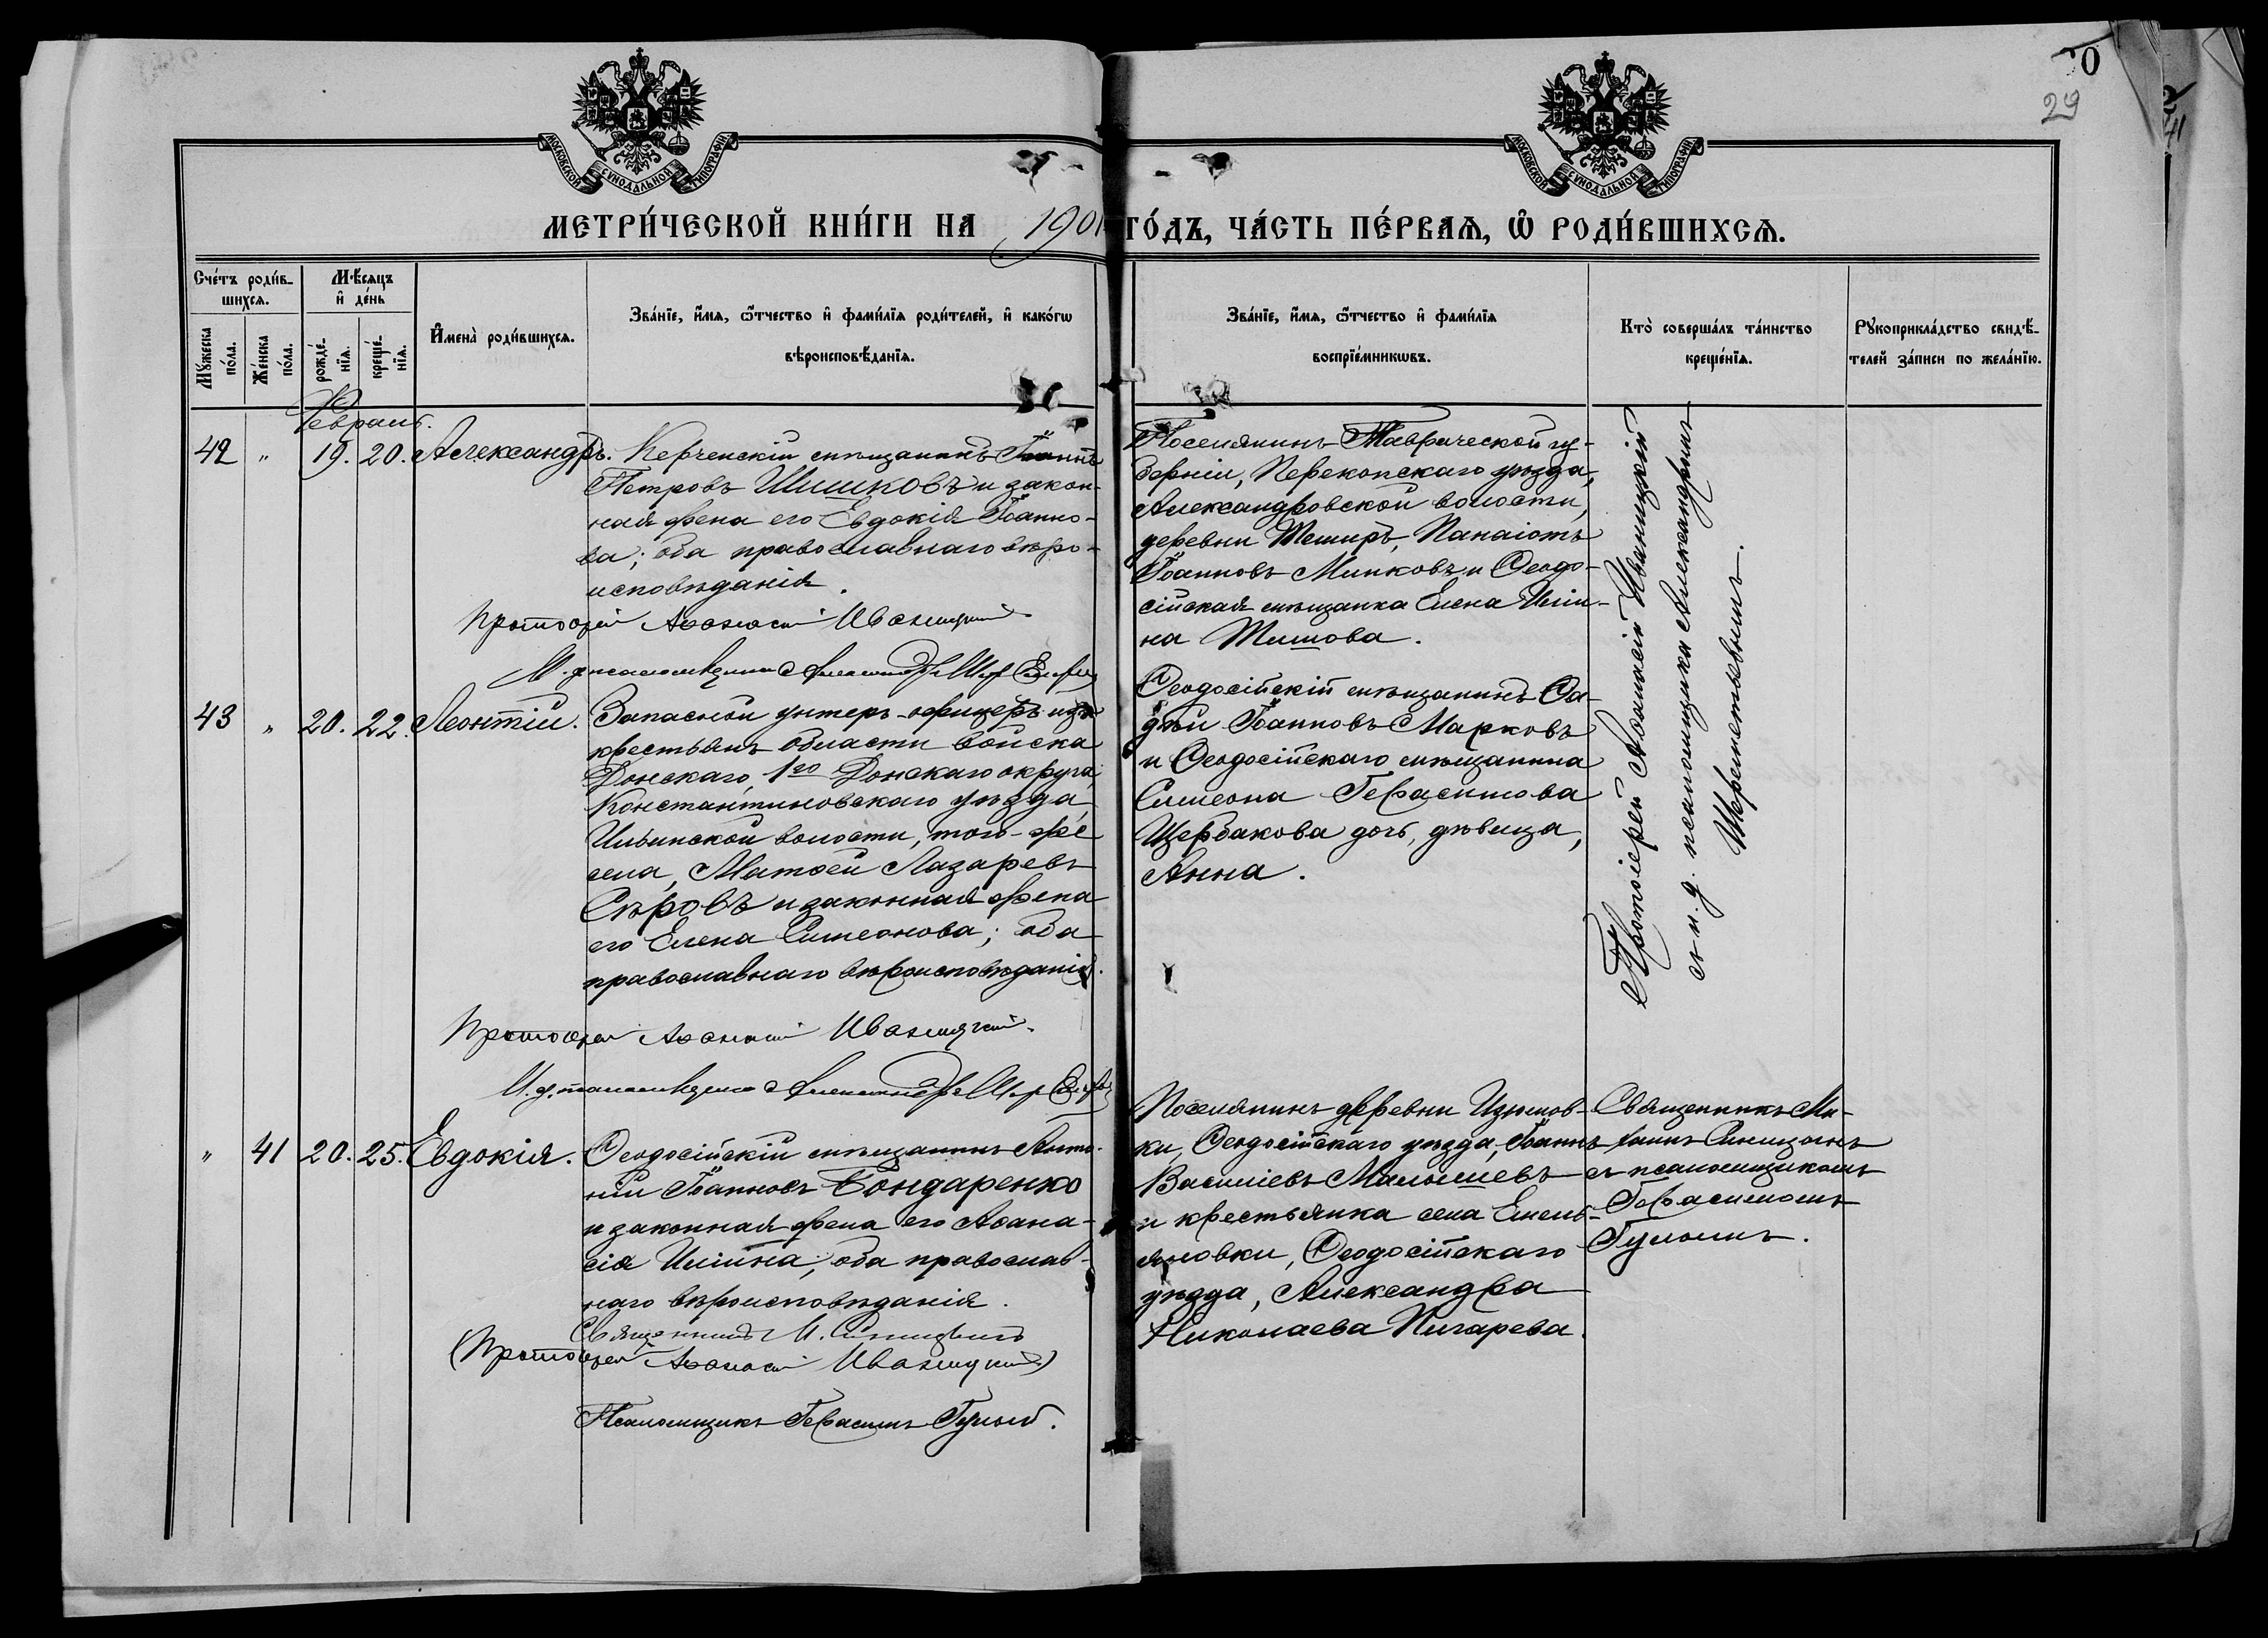 29
МОСКОВСКОЙ СѴНОДАЛЬНОЙ ТИПОГРАФІИ
МОСКОВСКОЙ СѴНОДАЛЬНОЙ ТИПОГРАФІИ
МЕТРИ́ЧЕСКОЙ КНИ́ГИ НА 1901 ГО́ДЪ, ЧА́СТЬ ПЕ́РВАѦ, Ѡ҆ РОДИ́ВШИХСѦ.
Сче́тъ роди́в-
шихсѧ.
Мꙋ́жеска
по́ла.
Же́нска
по́ла.
Мѣ́сѧцъ
и҆ де́нь
рожде́-
нїѧ.
креще́-
нїѧ.
И҆мена̀ роди́вшихсѧ.
Зва́нїе, и҆́мѧ, ѻ҆́тчество и҆ фами́лїѧ роди́телей, и҆ како́гѡ
вѣроисповѣ́данїѧ.
Зва́нїе, и҆́мѧ, ѻ҆́тчество и҆ фами́лїѧ
воспрїе́мникѡвъ.
Кто̀ соверша́лъ та́инство
креще́нїѧ.
Рꙋкоприкла́дство свидѣ́-
телей за́писи по жела́нїю.
Февраль.
42 " 19. 20. Александръ.
Керченскій мѣщанинъ Іоаннъ
Петровъ Шишковъ и закон-
ная жена его Евдокія Іоанно-
ва; оба православнаго вѣро-
исповѣданія.
Протоіерей Аѳанасій Иваницкій
И. д. псаломщика Александръ
Поселянинъ Таврической гу-
берніи, Перекопскаго уѣзда,
Александровской волости,
деревни Теширъ, Панаіотъ
Іоанновъ Минковъ и Ѳеодо-
сійская мѣщанка Елена Иліи-
на Тишова.
Протоіерей Аѳанасій Иваницкій
съ и. д. псаломщика Александромъ
Шереметьевымъ.
43 " 20. 22. Леонтій.
Запасной унтеръ-офицеръ изъ
крестьянъ области войска
Донскаго, 1го Донскаго округа,
Константиновскаго уѣзда,
Ильинской волости, того-же
села, Матѳей Лазаревъ
Сѣровъ и законная жена
его Елена Симеонова; оба
православнаго вѣроисповѣданія.
Протоіерей Аѳанасій Иваницкій.
И. д. псаломщика Александръ
Ѳеодосійскій мѣщанинъ Ѳа-
дѣй Іоанновъ Марковъ
и Ѳеодосійскаго мѣщанина
Симеона Герасимова
Щербакова дочь, дѣвица,
Анна.
" 41 20. 25. Евдокія.
Ѳеодосійскій мѣщанинъ Анто-
ній Іоанновъ Бондаренко
и законная жена его Аѳана-
сія Иліина; оба православ-
наго вѣроисповѣданія.
Священникъ М. Синицынъ
(Протоіерей Аѳанасій Иваницкій)
Псаломщикъ Герасимъ
Поселянинъ деревни Изюмов-
ки, Ѳеодосійскаго уѣзда, Іоаннъ
Василіевъ Малышевъ
и крестьянка села Емель-
яновки, Ѳеодосійскаго
уѣзда, Александра
Николаева Пигарева.
Священникъ Ми-
хаилъ Синицынъ
съ псаломщикомъ
Герасимомъ